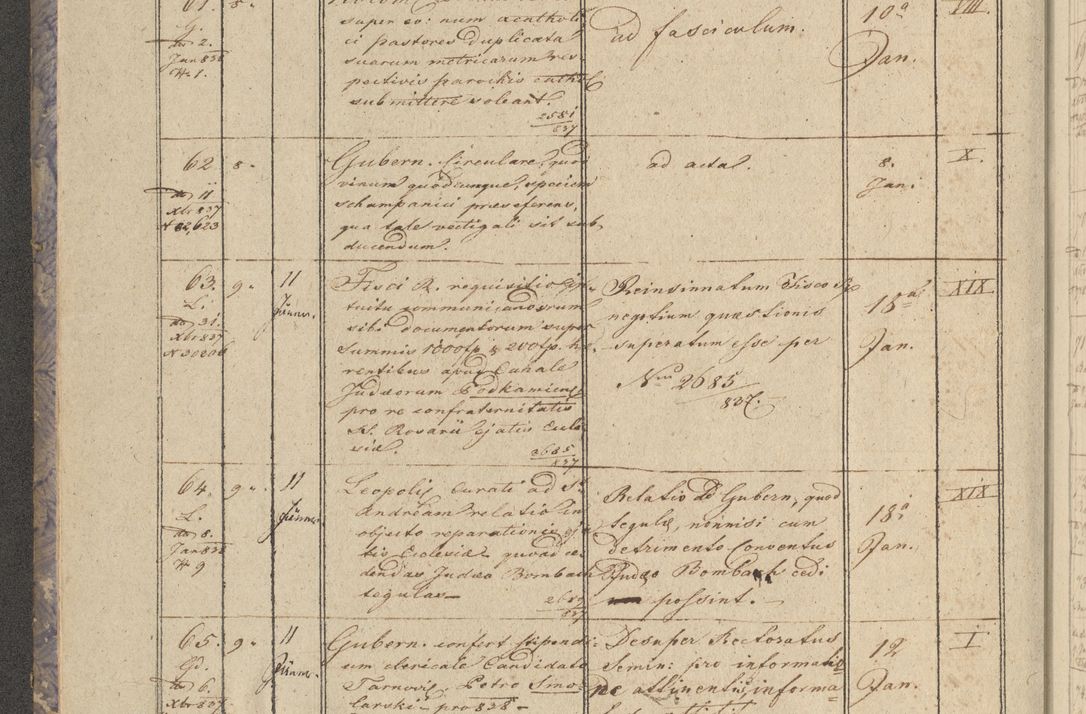 61. 8.
G.
do 2.
Jan 838
N 1.
super eo: num acatholi
ci pastores duplicata
suarum metricarum res-
pectivis parochis cathol
submittere soleant.
2581
837
ad fasciculum.
10a
Jan.
VIII.
62. 8.
do 11
Xbr 837
N 82,623
Gubern. Circulare, quod
vinum quodcunque, speciem
schampanici praeseferens,
qua tale vectigali sit sub
ducendum.
ad acta.
8.
Jan.
X.
63. 9.
L.
do 31.
Xbr 837
11
Jänner.
Fisci R. requisitio in-
tuitu communicandorum
sibi documentorum super
summis 1800fp & 200fp. hae-
rentibus apud Cahale
Judaeorum Podkamien
pro re confraternitatis
SS. Rosarii ejatis Eccle
siae.
2685
837
Reinsinnatum Fisco R
negotium quaestionis
superatum esse per
Nrum 2685
837.
18a
Jan.
XIX
64. 9.
L.
do 8.
Jan 838
N 9
11
Jänner.
Leopolis Curati ad St.
Andream relatio in
objecto reparationis eja
tis Ecclesiae quoad ce-
dendas Judaeo Bombach
tegulas
837
Relatio ad Gubern, quod
tegulae, nonnisi cum
detrimento Conventus
Judaeo Bombach cedi
possint.
18a
Jan.
XIX
65. 9.
G.
do 6.
Xbr 837.
11
Jänner.
Gubern. confert stipendi-
um clericale Candidato
Tarnovis. Petro Smo-
larski pro 838
Desuper Rectoratus
Semin: pro informatio
ne attinentis informa
12.
Jan.
I